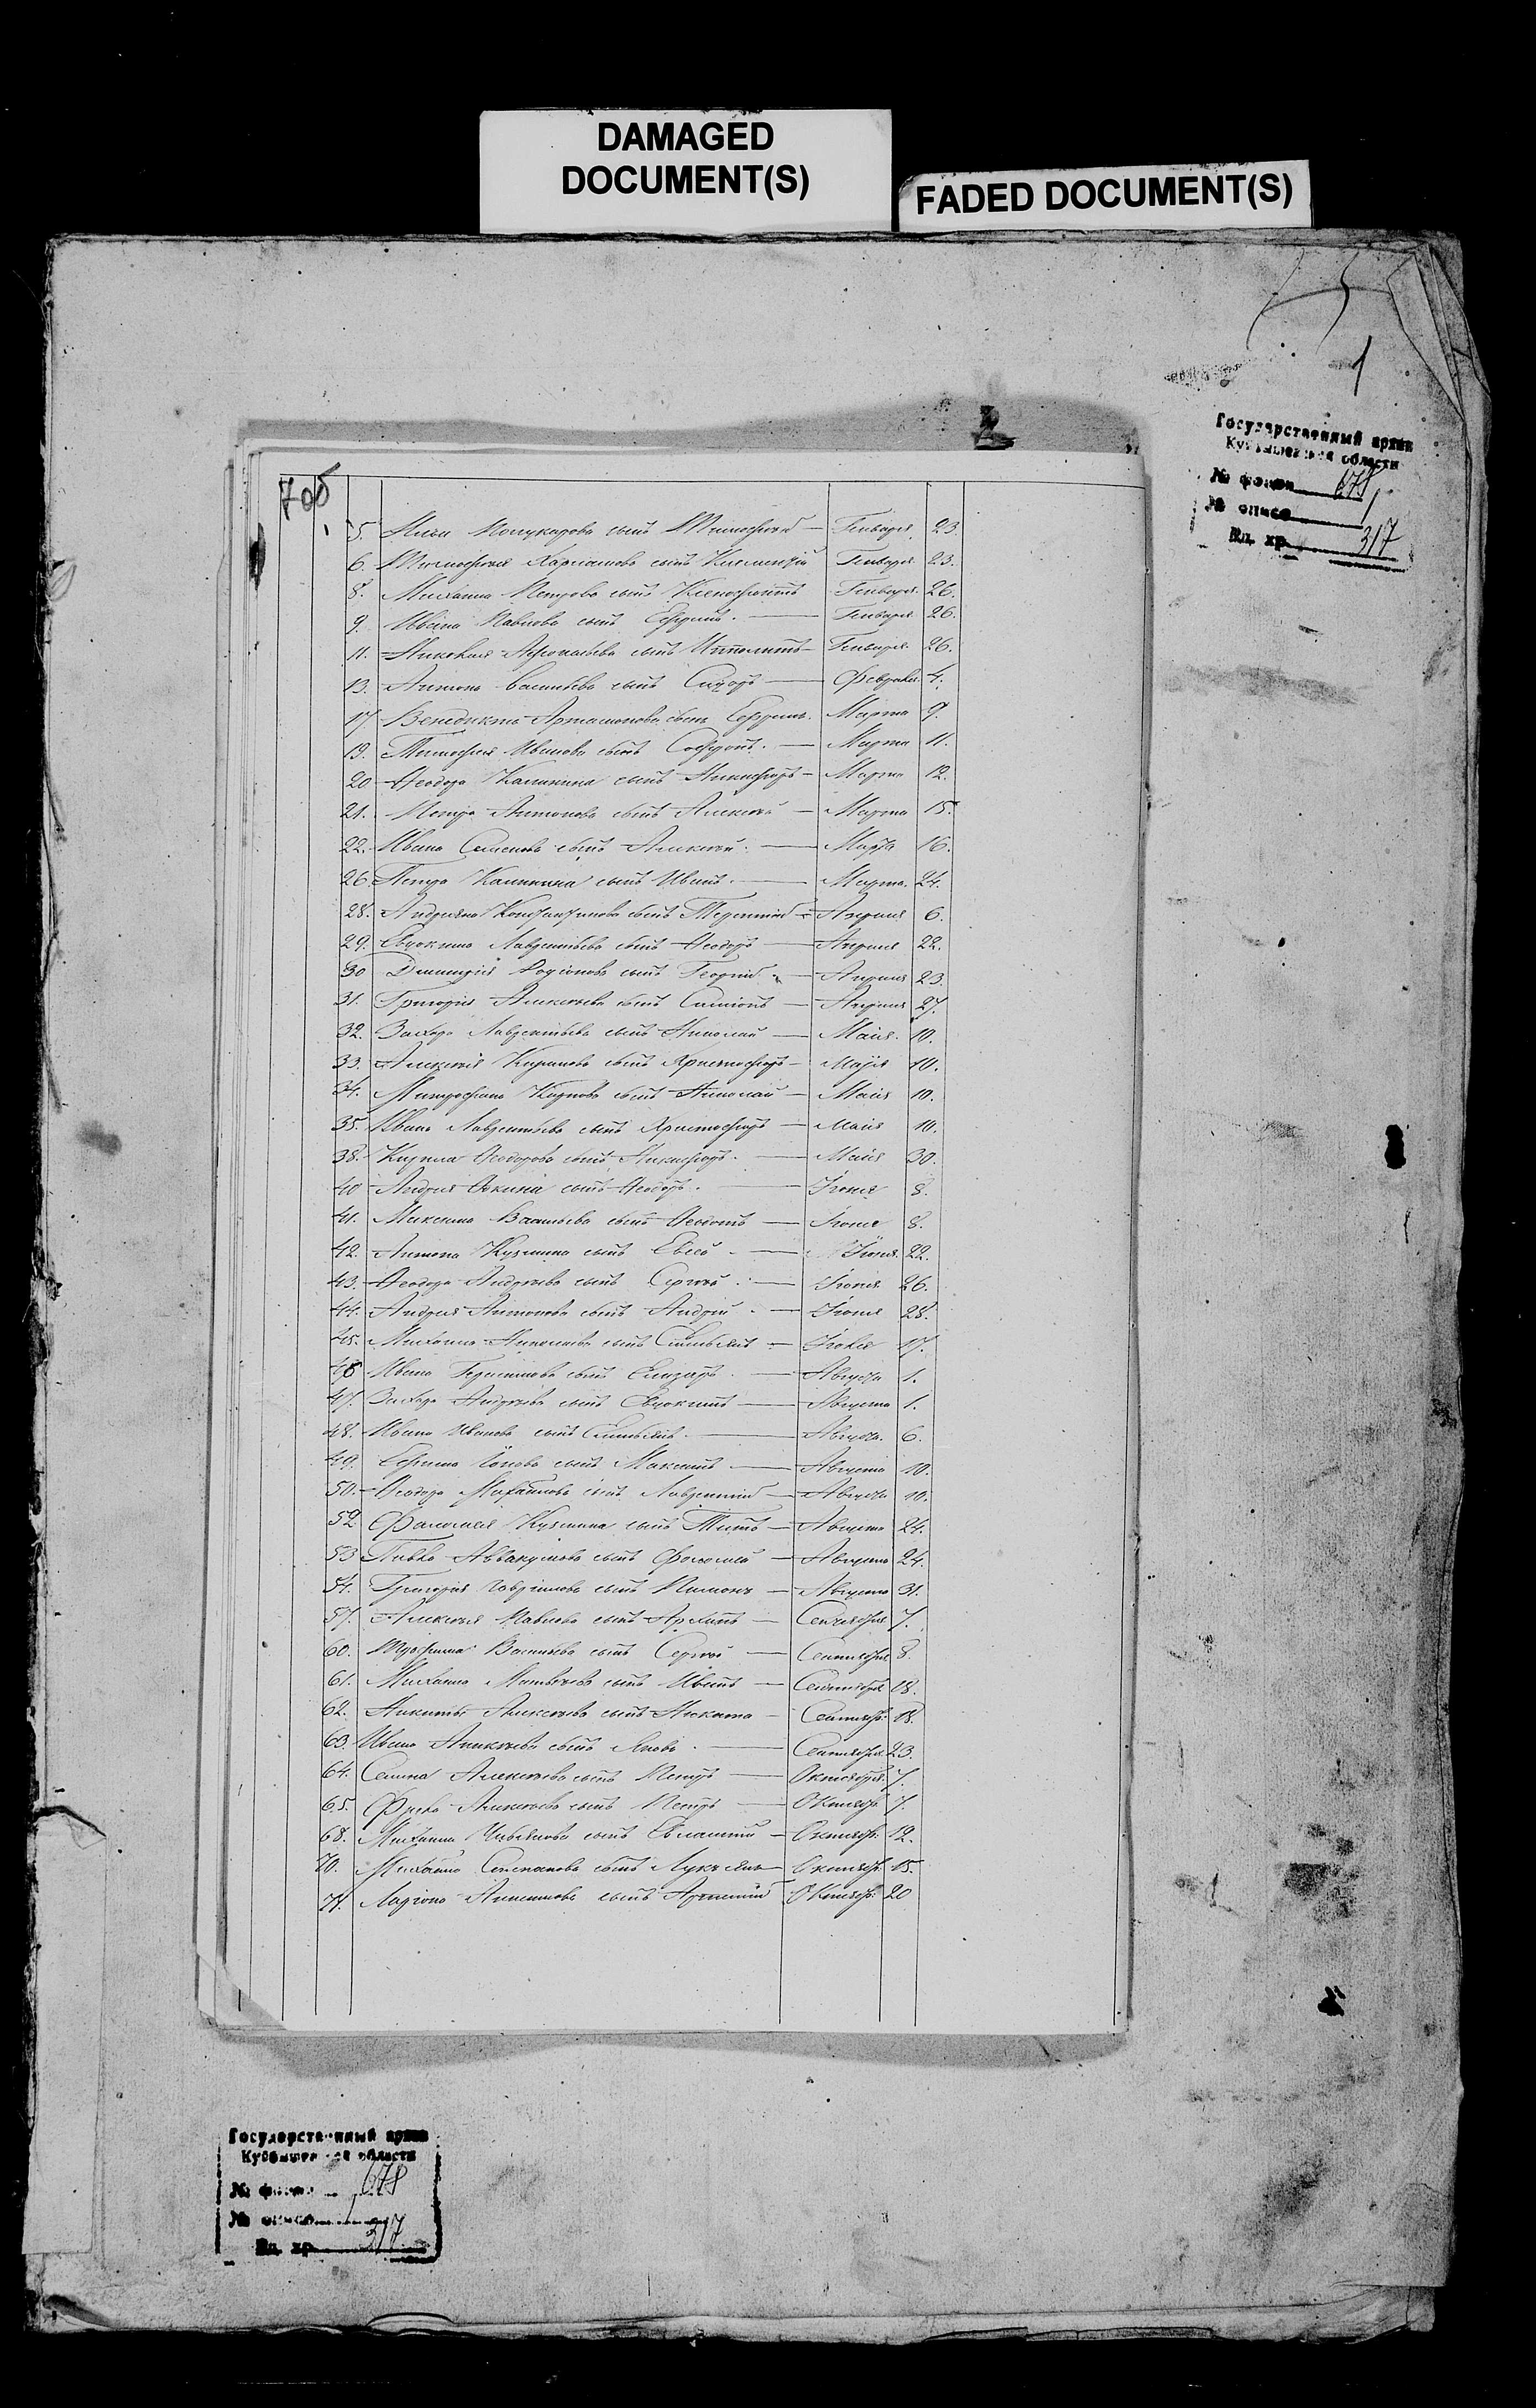 DAMAGED
DOCUMENT(S)
FADED DOCUMENT(S)
1
2
Государственный архив
Куйбышевской области
№ фонда 678
№ описи 1
Ед. хр. 317
705
5. Ильи Поликарпова сынъ Тимофей — Генваря 23.
6. Тимофея Харланова сынъ Климентій Генваря 23.
8. Михаила Петрова сынъ Ксенофонтъ Генваря 26.
9. Ивана Павлова сынъ Ефремъ. — Генваря 26.
11. Николая Афонасьева сынъ Ипполитъ — Генваря 26.
13. Антона Васильева сынъ Сидоръ — Февраля 4.
17. Венедикта Артамонова сынъ Ефремъ. Марта 9.
19. Тимофея Иванова сынъ Софронъ. — Марта 11.
20 Ѳеодора Калинина сынъ Никифоръ — Марта 12.
21. Петра Антонова сынъ Алексей — Марта 15.
22. Ивана Семенова сынъ Алексей. — Марта 16.
26 Петра Калинина сынъ Иванъ. — Марта. 24.
28. Андреяна Константинова сынъ Терентій — Апреля 6.
29. Евдокима Лаврентьева сынъ Ѳеодоръ — Апреля 22.
30 Дмитрія Родіонова сынъ Георгій — Апреля 23.
31. Григорія Алексеева сынъ Симіонъ — Апреля 27.
32. Захара Лаврентьева сынъ Николай — Маія. 10.
33. Алексея Кирилова сынъ Христофоръ — Маія 10.
34. Митрофана Карпова сынъ Николай — Маія 10.
35. Ивана Лаврентьева сынъ Христофоръ — Маія 10.
38. Кирила Ѳеодорова сынъ Никифоръ. — Маія 30.
40 Андрея Фокина сынъ Ѳеодоръ. — Іюня 8.
41. Максима Васильева сынъ Ѳедотъ — Іюня 8.
42. Антона Кузмина сынъ Евсей — Іюня. 22.
43. Ѳеодора Андреева сынъ Сергей — Іюня 26.
44. Андрея Антонова сынъ Андрей — Іюня 28.
45. Михаила Николаева сынъ Емельянъ — Іюля 17.
46 Ивана Герасимова сынъ Елизаръ. — Августа 1.
47. Захара Андреева сынъ Евдокимъ — Августа 1.
48. Ивана Иванова сынъ Емельянъ. — Августа. 6.
49. Ефрема Іонова сынъ Максимъ — Августа 10.
50. Ѳеодора Михайлова сынъ Лаврентій — Августа 10.
52 Фаломея Кузмина сынъ Титъ — Августа 24.
53 Павла Аввакумова сынъ Фаломей — Августа 24.
54. Григорія Гаврилова сынъ Пименъ — Августа 31.
57. Алексея Павлова сынъ Архипъ — Сентября 7.
60. Трофима Васильева сынъ Сергей — Сентября 8.
61. Михаила Матвеева сынъ Иванъ — Сентября 18.
62. Никиты Алексеева сынъ Никита — Сентяб: 18.
63. Ивана Аникеева сынъ Яковъ. — Сентября 23.
64. Семена Алексеева сынъ Петръ — Октября. 7.
65. Фрола Алексеева сынъ Петръ — Октяб. 7.
68. Михаила сынъ Евлампій — Октяб: 12.
70. Михайла Степанова сынъ Лукьянъ — Октяб. 15.
71. Ларіона Анисимова сынъ Артемій Октяб: 20
Государственный архив
Куйбышевской области
№ фонда 678
№ описи 1
Ед. хр. 317